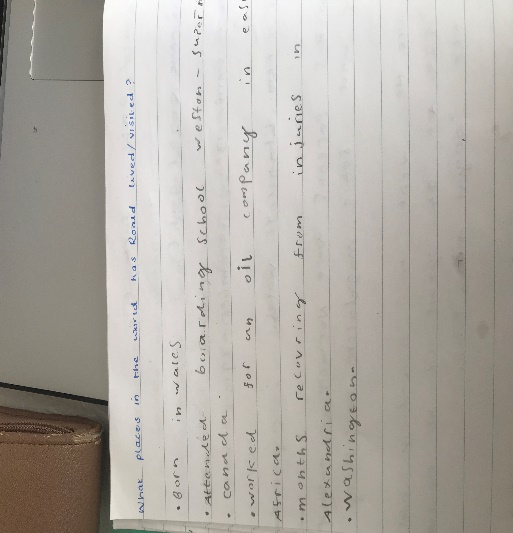 What places in the world has Roald lived/visited?
• Born in wales
• Attended boarding school weston - super
• canada.
• worked for an oil company in eas
Africa.
• months recovring from injuries in
Alexandria.
• Washington.